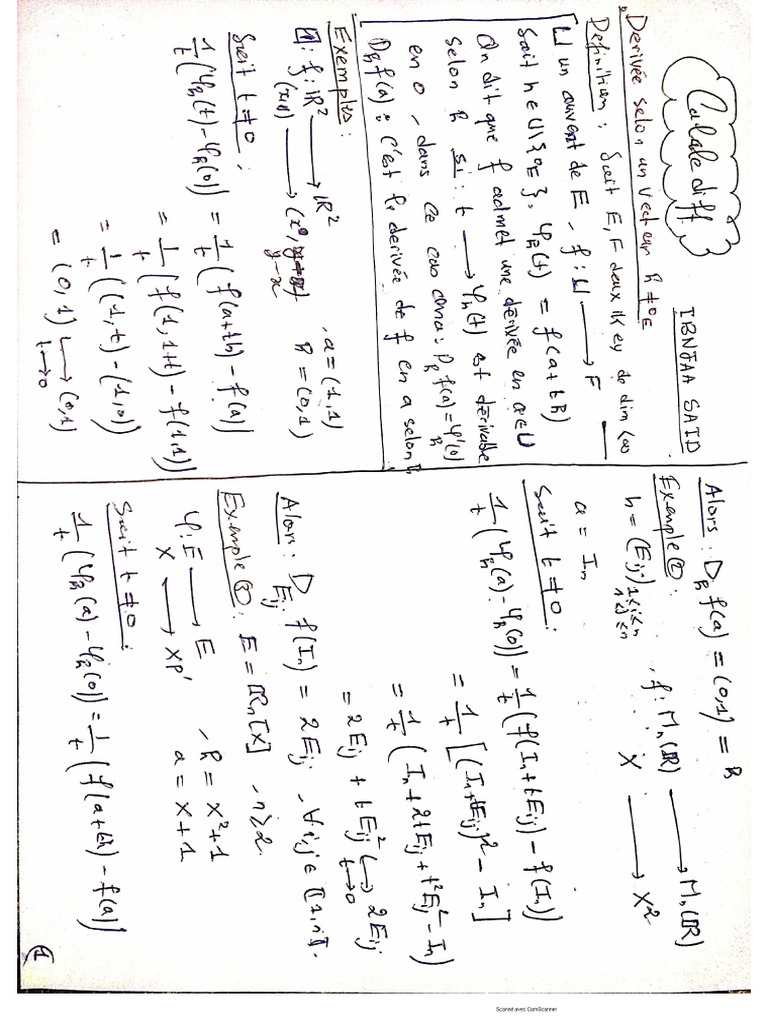 Calcule diff
IBNJAA SAID
Derivée selon un vecteur h ≠ 0_E
Definition : Soit E, F deux IK ev de dim < ∞
U un ouvert de E, f : U ⟶ F
Soit h ∈ U \ {0_E}, φ_h(t) = f(a + th)
On dit que f admet une dérivée en a ∈ U
selon h si : t ⟶ φ_h(t) est dérivable
en 0, dans ce cas on a : D_h f(a) = φ'_h(0)
D_h f(a) : c'est la derivée de f en a selon h
Exemples :
1 : f : IR² ⟶ IR² , a = (1,1)
⟶ (x², y-x) h = (0,1)
Soit t ≠ 0 :
1/t (φ_h(t) - φ_h(0)) = 1/t (f(a+th) - f(a))
= 1/t (f(1,1+t) - f(1,1))
= 1/t ((1,t) - (1,0))
= (0,1) ⟶ (0,1)
t→0
Alors : D_h f(a) = (0,1) = h
Exemple ② :
h = (E_ij) 1≤i≤n 1≤j≤n , f : M_n(IR) ⟶ M_n(IR)
a = I_n X ⟶ X²
Soit t ≠ 0 :
1/t (φ_h(a) - φ_h(0)) = 1/t (f(I_n + tE_ij) - f(I_n))
= 1/t [(I_n + tE_ij)² - I_n]
= 1/t (I_n + 2tE_ij + t²E_ij² - I_n)
= 2E_ij + tE_ij² ⟶ 2E_ij
t→0
Alors : D_E_ij f(I_n) = 2E_ij , ∀ i,j ∈ ⟦1,n⟧.
Exemple ③ : E = IR_n[X] , n ≥ 2.
φ : E ⟶ E , h = X² + 1
X ⟶ XP' a = X + 1
Soit t ≠ 0 :
1/t (φ_h(a) - φ_h(0)) = 1/t (f(a+th) - f(a))
1
Scanné avec CamScanner